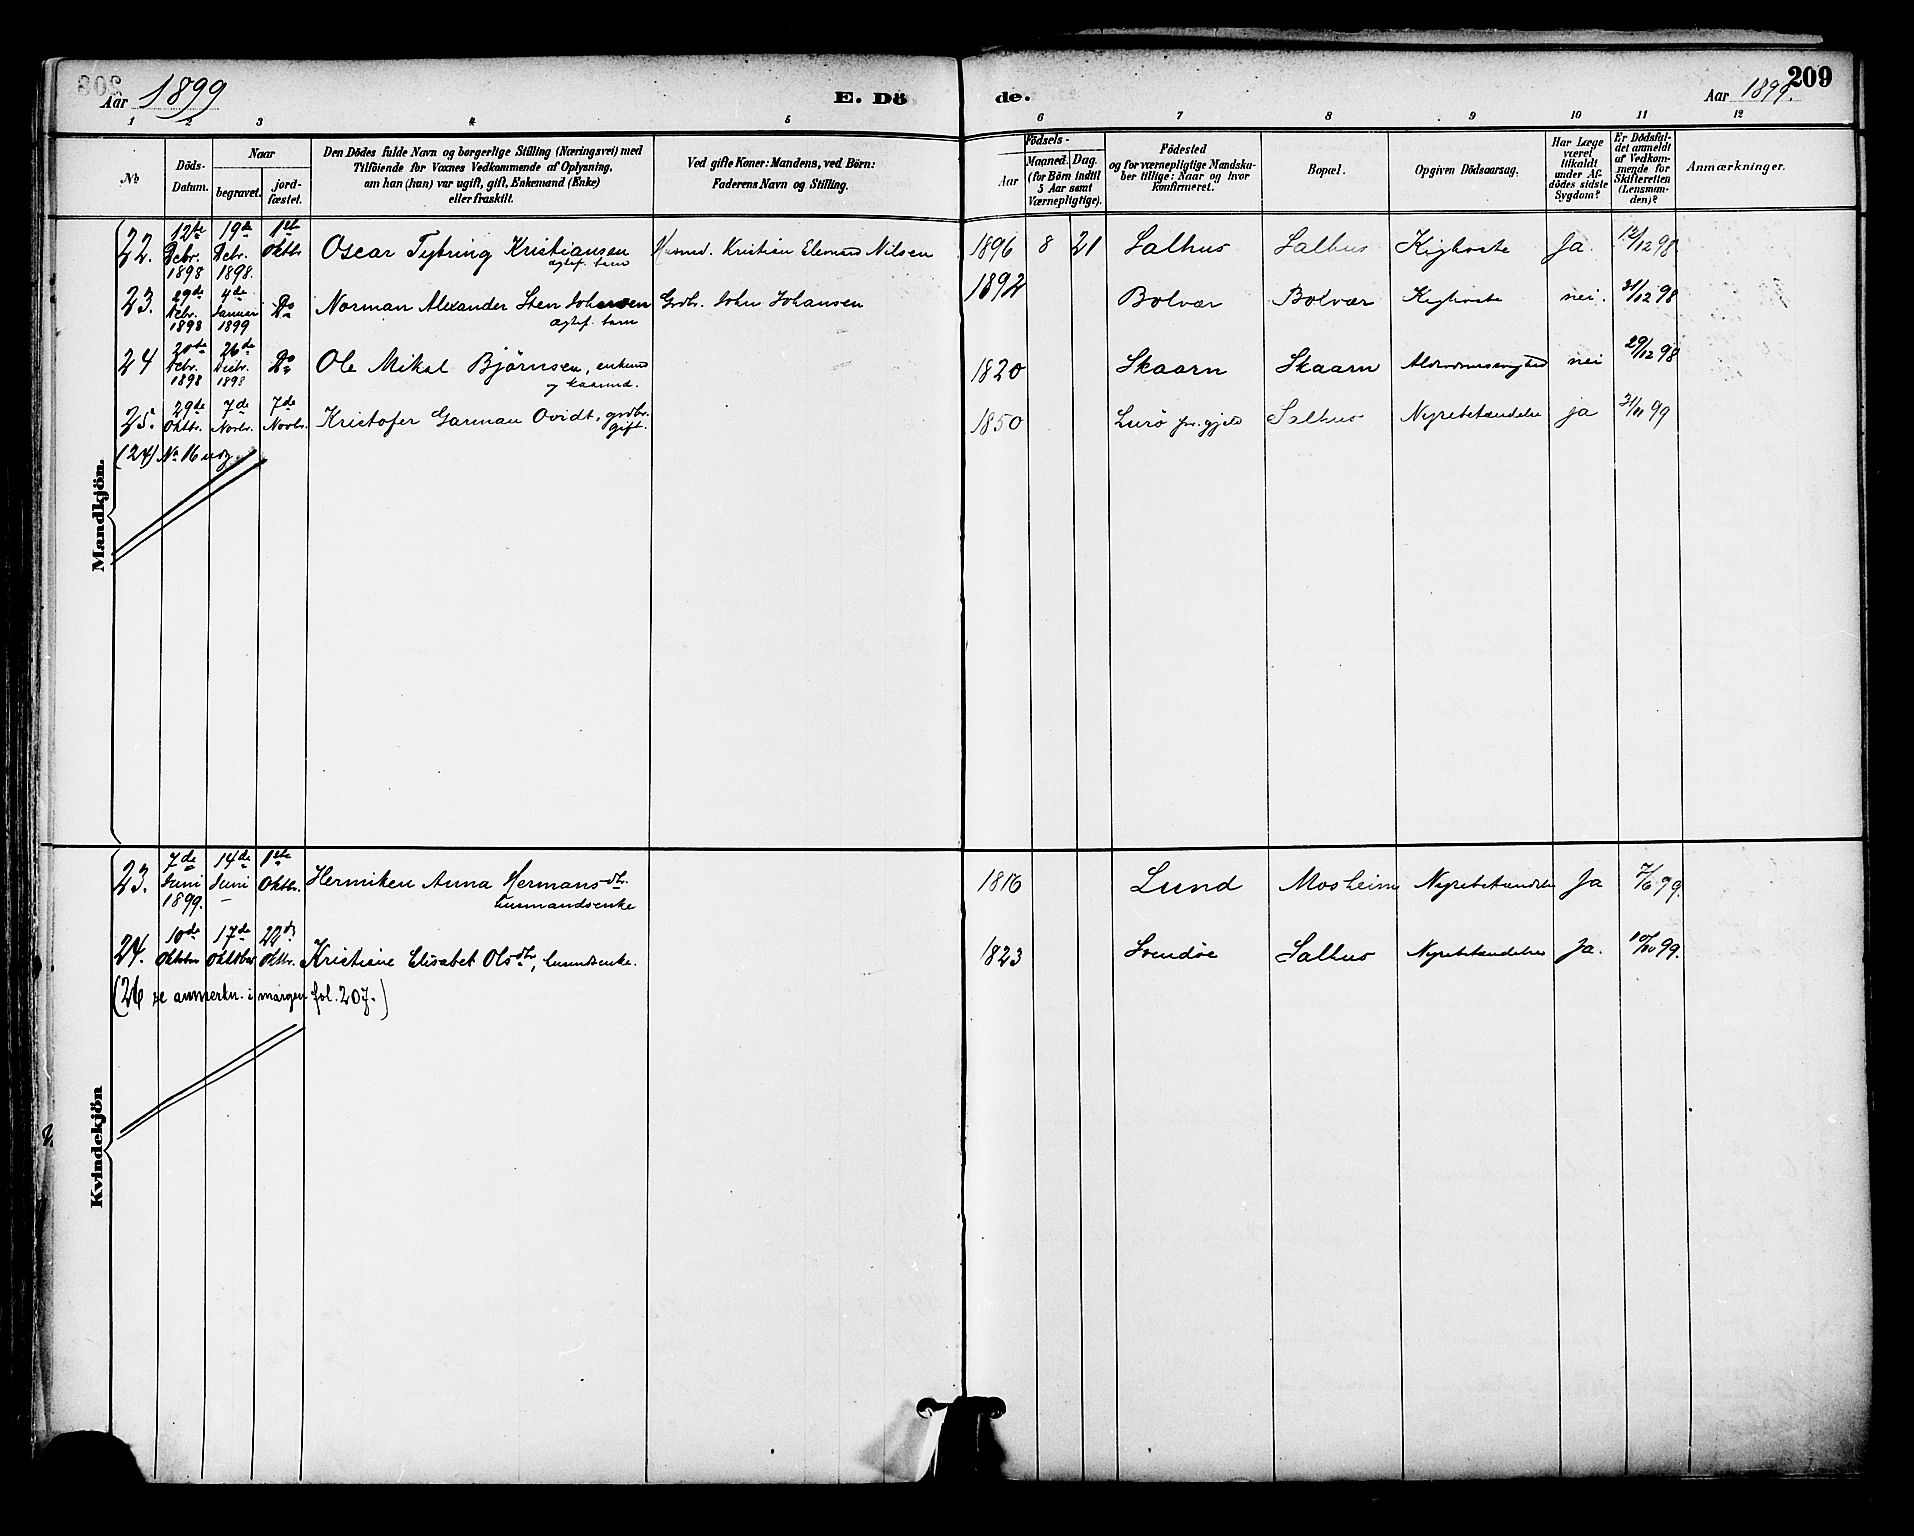 209
Aar 1899
E. Dö
de.
Aar 1899.
1 2 3 4 5 6 7 8 9 10 11 12
No
Döds-
Datum.
Naar
begravet.
jord-
fæstet.
Den Dödes fulde Navn og borgerlige Stilling (Næringsvei) med
Tilföiende for Voxnes Vedkommende af Oplysning,
om han (hun) var ugift, gift, Enkemand (Enke)
eller fraskilt.
Ved gifte Koner: Mandens, ved Börn:
Faderens Navn og Stilling.
Födsels-
Aar
Maaned. Dag.
(for Börn indtil
5 Aar samt
Værnepligtige).
Födested
og for værnepligtige Mandska-
ber tillige: Naar og hvor
konfirmeret.
Bopæl.
Opgiven Dödsaarsag.
Har Læge
været
tilkaldt
under Af-
dödes sidste
Sygdom?
Er Dödsfal-
det anmeldt
af Vedkom-
mende for
Skifteretten
(Lensman-
den)?
Anmærkninger.
Mandkjön.
22. 12te Debr. 1898 19de Debr. 1898. 1ste Oktbr. Oscar Kristiansen ægtef. barn Husmd. Kristian Nilsen 1896 8 21 Salhus Salhus Kighoste Ja. 12/12 98
23. 29de Debr. 1898 4de Januar 1899 Do Norman Alexander Sten Johansen ægtef. barn Grdbr. John Johansen 1892 Bolvær Bolvær Kighoste nei. 31/12 98
24 20de Debr. 1898 26de Debr. 1898 Do Ole Mikal Björnsen, enkemd 1820 Skaarn Skaarn nei 29/12 98
25. 29de Oktbr. 7de Novbr. 7de Novbr. Kristofer Garman Ovidt, grdbr. gift. 1850 Lurö Salhus Nyrebetændelse ja 31/11 99
(24) No 16
Kvindekjön
23. 7de Juni 1899. 14de Juni – 1ste Oktbr. Hermiken Anna Hermansdtr. husmandsenke 1816 Lund Mosheim Nyrebetændelse Ja 7/6 99.
24. 10de Oktober 17de Oktober 22de Oktbr. Kristine Elisabet Olsdtr, husmdsenke. 1823 Svendöe Salhus Nyrebetændelse Ja. 10/10 99.
(26 se anmerkn. i margen fol. 207.)